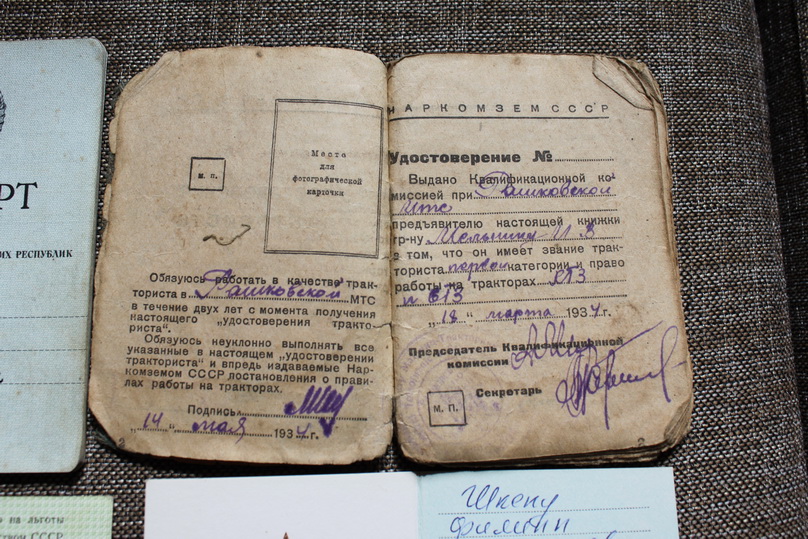 РТ
ИХ РЕСПУБЛИК
Место
для
фотографической
карточки
М. П.
Обязуюсь работать в качестве трак-
ториста в Рашковской МТС
в течение двух лет с момента получения
настоящего „удостоверения тракто-
риста“.
Обязуюсь неуклонно выполнять все
указанные в настоящем „удостоверении
тракториста“ и впредь издаваемые Нар-
комземом СССР постановления о прави-
лах работы на тракторах.
Подпись
„14“ мая 1934 г.
2
НАРКОМЗЕМ СССР
Удостоверение №
Выдано Квалификационной ко-
миссией при Рашковской
мтс
предъявителю настоящей книжки
гр-ну Мельник И. В
в том, что он имеет звание трак-
ториста первой категории и право
работы на тракторах ХТЗ
и СТЗ
„18“ марта 1934 г.
Председатель Квалификационной
комиссии
Секретарь
М. П.
на льготы
СССР
Шкепу